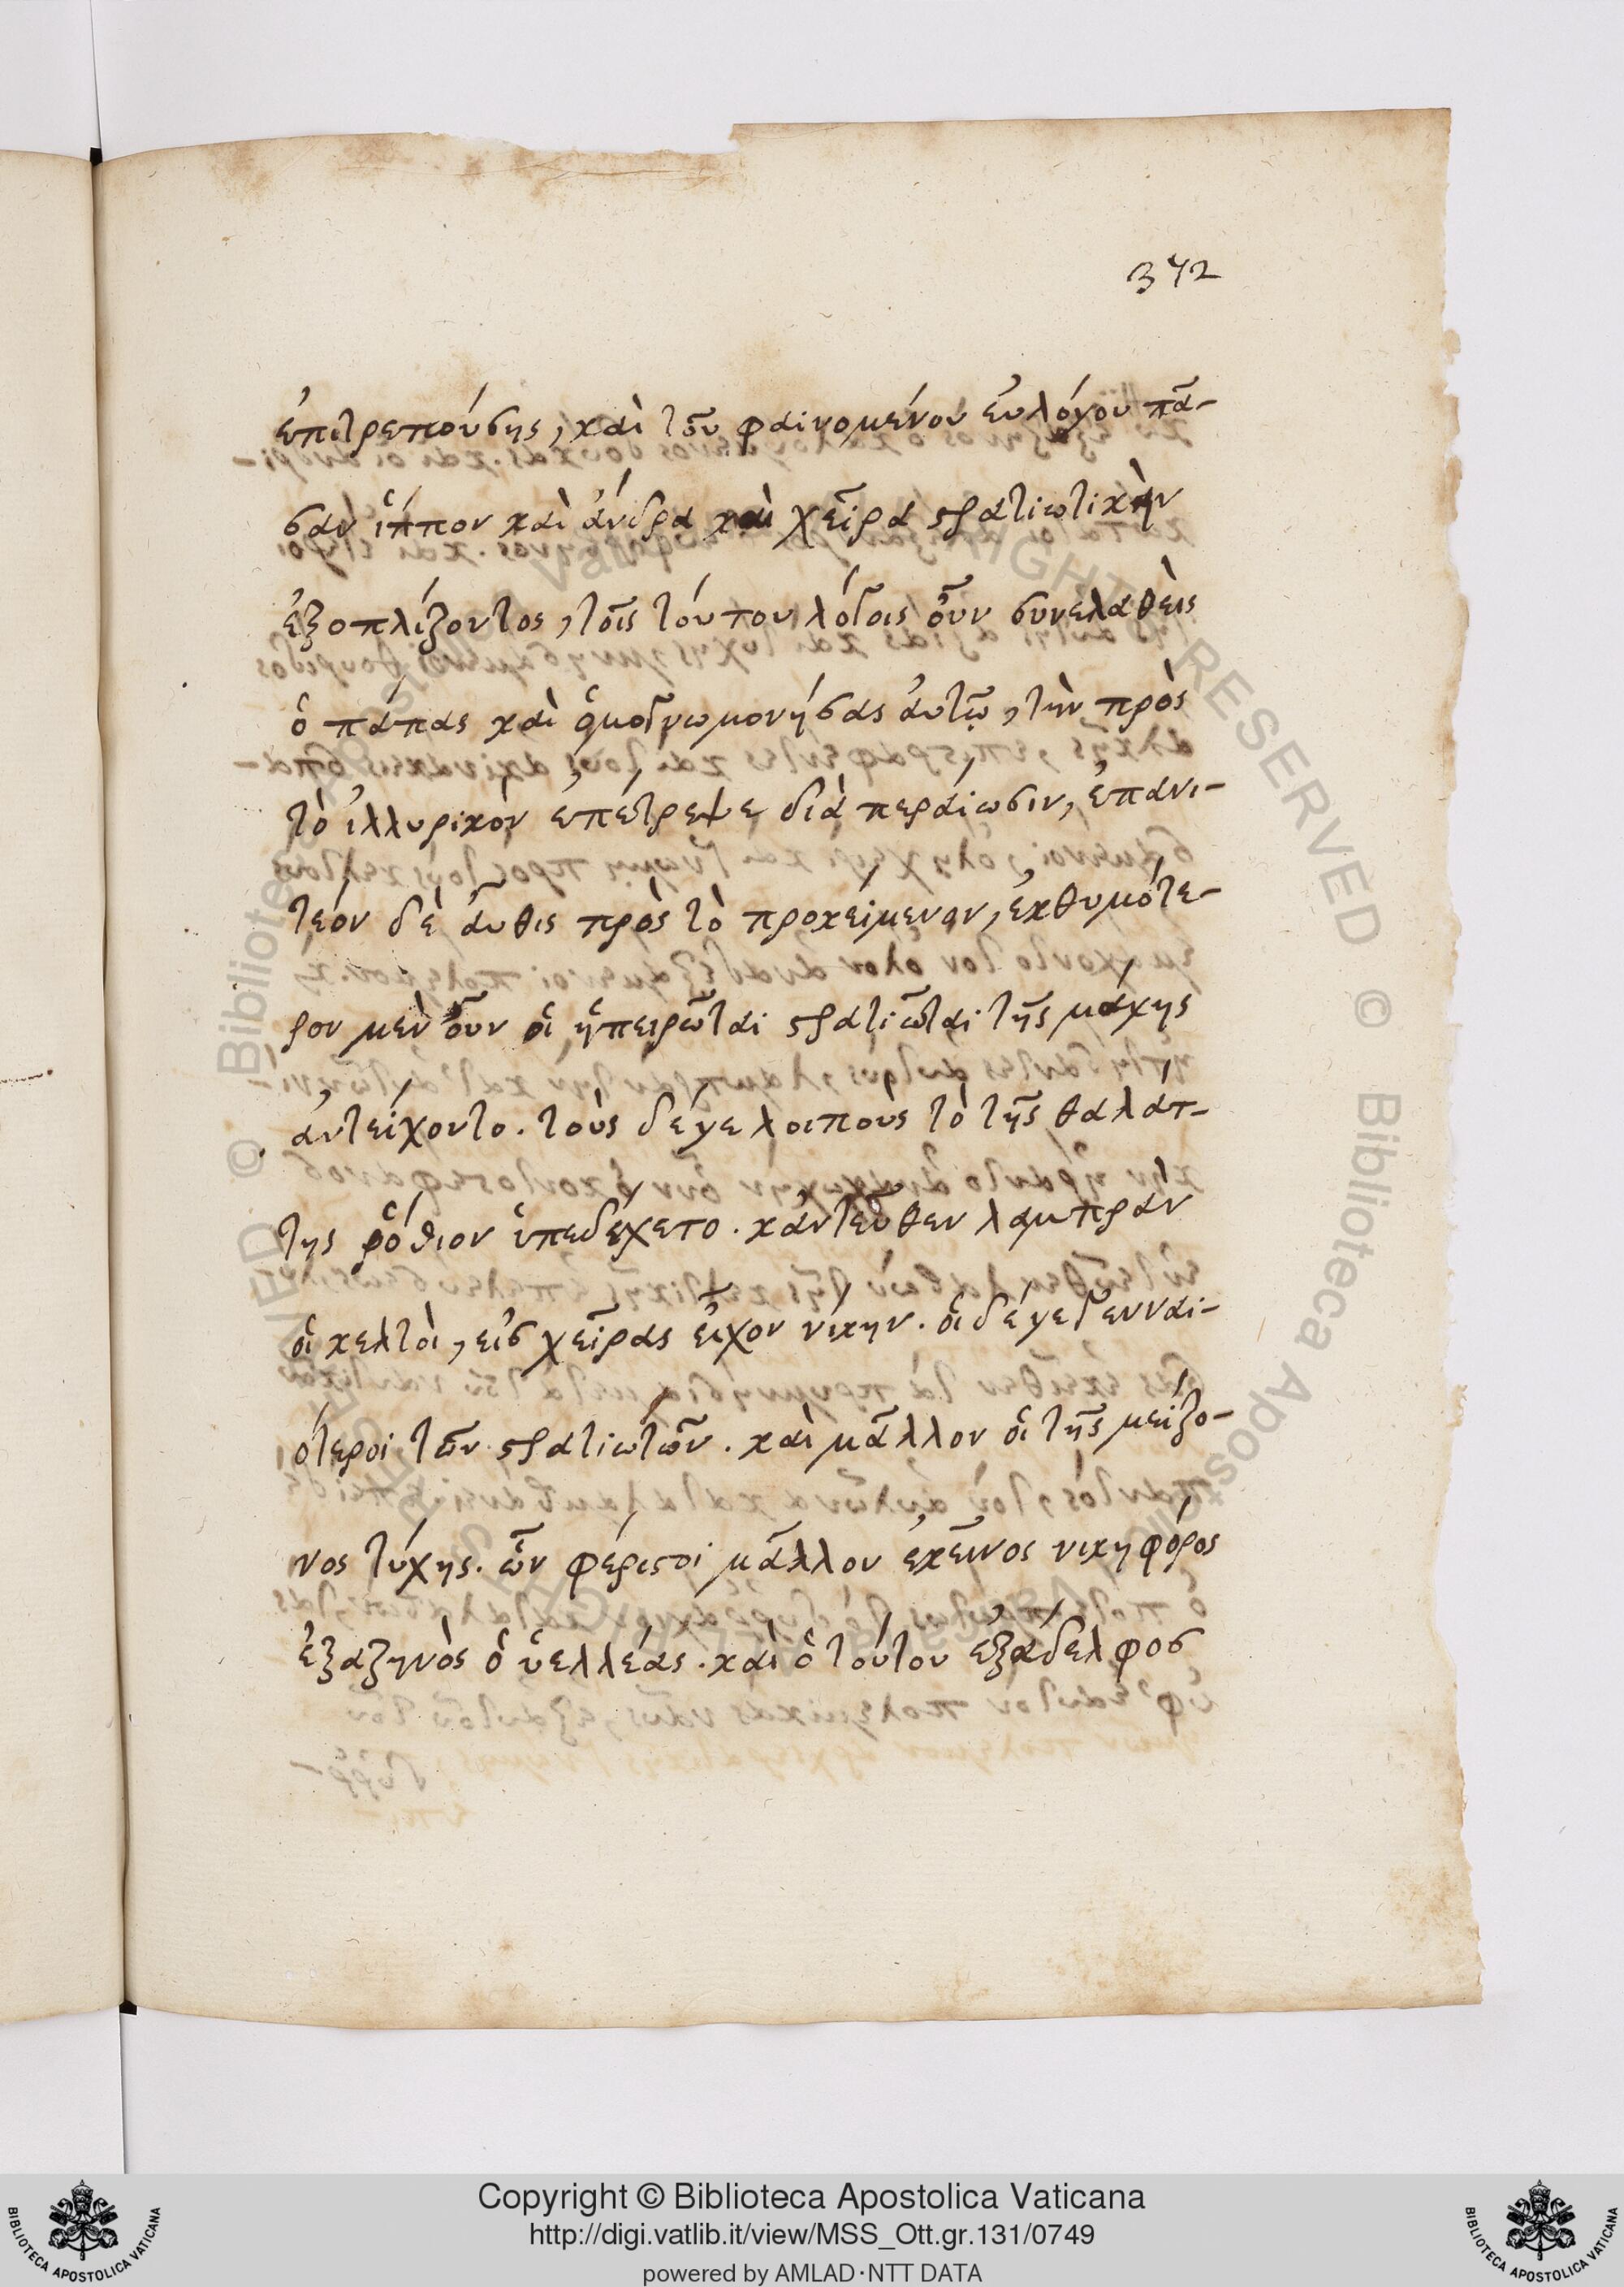 372
ἐπιτρεπούσης, καὶ τοῦ φαινομένου ἐυλόγου πᾶ-
σαν ἵππον καὶ ἄνδρα καὶ χεῖρα στρατιωτικὴν
ἐξοπλίζοντος, τοῖς τούτου λόγοις οὖν συνελαθεὶς
ὁ πάπας καὶ ὁμογνωμονήσας ἀυτῷ, τὴν πρὸς
τὸ ἰλλυρικὸν ἐπέτρεψε διὰ περαίωσιν, ἐπανι-
τέον δὲ ἆυθις πρὸς τὸ προκείμενον, ἐκθυμότε-
ρον μὲν οὖν οἱ ἠπειρῶται στρατιῶται τῆς μάχης
ἀντείχοντο. τοὺς δέ γε λοιποὺς τὸ τῆς θαλάτ-
της ῥόθιον ὑπεδέχετο. κἀντεῦθεν λαμπρὰν
οἱ κελτοὶ, εἰς χεῖρας εἶχον νίκην. οἱ δέ γε γενναι-
ότεροι τῶν στρατιωτῶν. καὶ μᾶλλον οἱ τῆς μείζο-
νος τύχης. ὧν φέριστοι μᾶλλον ἐκεῖνος νικηφόρος
ἐξαζηνὸς ὁ ὑελλέας. καὶ ὁ τούτου ἐξάδελφος
Copyright © Biblioteca Apostolica Vaticana
http://digi.vatlib.it/view/MSS_Ott.gr.131/0749
powered by AMLAD·NTT DATA
BIBLIOTECA APOSTOLICA VATICANA
BIBLIOTECA APOSTOLICA VATICANA